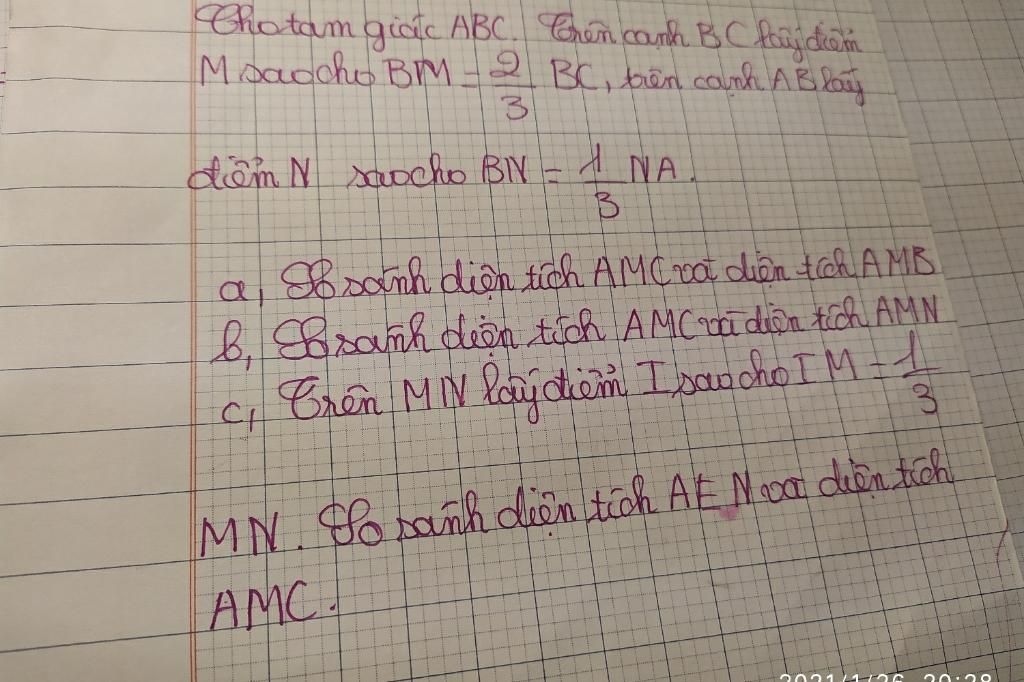 Cho tam giác ABC. Trên cạnh BC lấy điểm
M sao cho BM = 2/3 BC, trên cạnh AB lấy
điểm N sao cho BN = 1/3 NA.
a, So sánh diện tích AMC và diện tích AMB
b, So sánh diện tích AMC và diện tích AMN
c, Trên MN lấy điểm I sao cho IM = 1/3
MN. So sánh diện tích AEN và diện tích
AMC.
2021/1/26 20:28